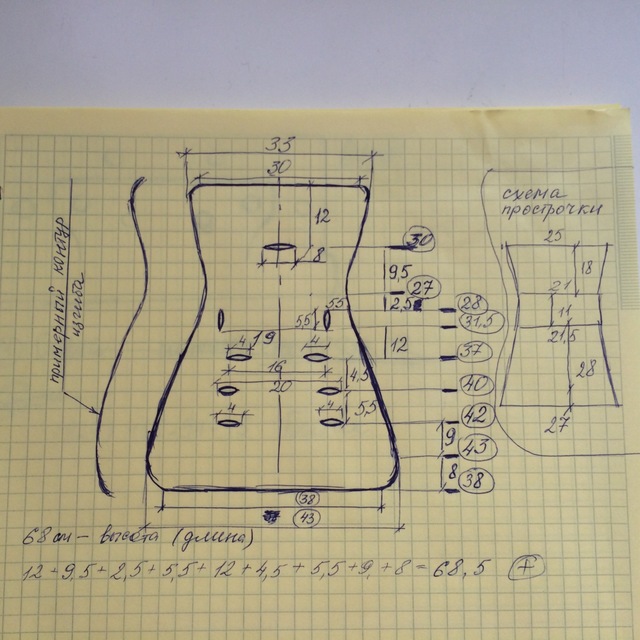 33
30
12
8
30
9,5
27
2,5
28
5,5
5,5
31,5
19
4
4
12
37
16
4,5
20
40
4
4
5,5
42
9
43
8
38
38
43
примерный контур
изгиба
схема
прострочки
25
18
21
11
21,5
28
27
68 см – высота (длина)
12 + 9,5 + 2,5 + 5,5 + 12 + 4,5 + 5,5 + 9, + 8 = 68,5 +